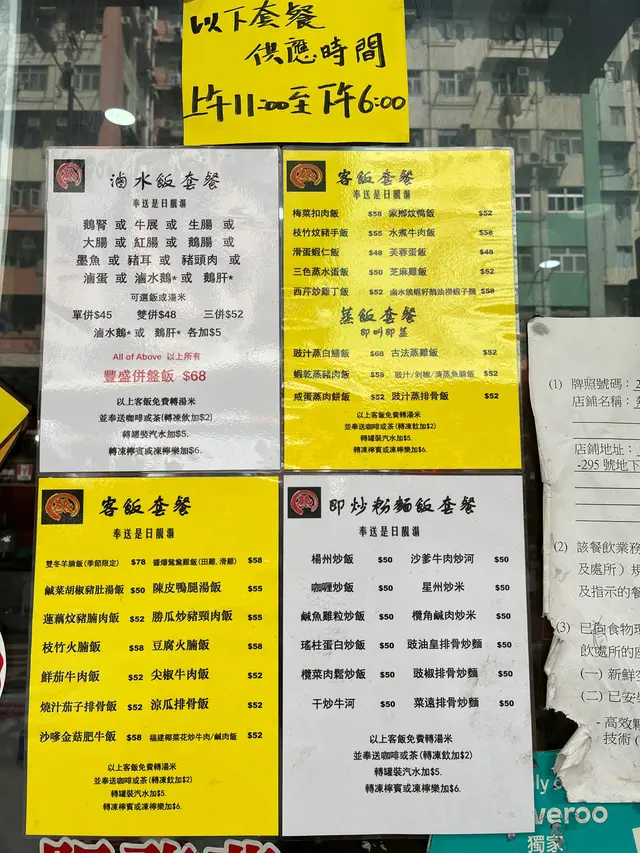 以下套餐
供應時間
上午11:00至下午6:00
滷水飯套餐
奉送是日靚湯
鵝腎 或 牛展 或 生腸 或
大腸 或 紅腸 或 鵝腸 或
墨魚 或 豬耳 或 豬頭肉 或
滷蛋 或 滷水鵝* 或 鵝肝*
可選飯或湯米
單併$45 雙併$48 三併$52
滷水鵝* 或 鵝肝* 各加$5
All of Above 以上所有
豐盛併盤飯 $68
以上客飯免費轉湯米
並奉送咖啡或茶(轉凍飲加$2)
轉罐裝汽水加$5.
轉凍檸賓或凍檸樂加$6.
客飯套餐
奉送是日靚湯
梅菜扣肉飯 $58 家鄉炆鴨飯 $52
枝竹炆豬手飯 $55 水煮牛肉飯 $58
滑蛋蝦仁飯 $48 芙蓉蛋飯 $48
三色蒸水蛋飯 $50 芝麻雞飯 $52
西芹炒雞丁飯 $52 滷水鵝蝦籽鵝油撈蝦子麵 $58
蒸飯套餐
即叫即蒸
豉汁蒸白鱔飯 $68 古法蒸雞飯 $52
蝦乾蒸豬肉飯 $59 豉汁/剁椒/清蒸魚腩飯 $52
咸蛋蒸肉餅飯 $52 豉汁蒸排骨飯 $52
以上客飯免費轉湯米
並奉送咖啡或茶(轉凍飲加$2)
轉罐裝汽水加$5.
轉凍檸賓或凍檸樂加$6.
客飯套餐
奉送是日靚湯
雙冬羊腩飯(季節限定) $78 醬爆鴛鴦雞飯(田雞,滑雞) $58
鹹菜胡椒豬肚湯飯 $50 陳皮鴨腿湯飯 $55
蓮藕炆豬腩肉飯 $52 勝瓜炒豬頸肉飯 $55
枝竹火腩飯 $58 豆腐火腩飯 $58
鮮茄牛肉飯 $52 尖椒牛肉飯 $52
燒汁茄子排骨飯 $52 涼瓜排骨飯 $52
沙嗲金菇肥牛飯 $58 福建椰菜花炒牛肉/鹹肉飯 $52
以上客飯免費轉湯米
並奉送咖啡或茶(轉凍飲加$2)
轉罐裝汽水加$5.
轉凍檸賓或凍檸樂加$6.
即炒粉麵飯套餐
奉送是日靚湯
楊州炒飯 $50 沙爹牛肉炒河 $50
咖喱炒飯 $50 星州炒米 $50
鹹魚雞粒炒飯 $50 欖角鹹肉炒米 $50
瑤柱蛋白炒飯 $50 豉油皇排骨炒麵 $50
欖菜肉鬆炒飯 $50 豉椒排骨炒麵 $50
干炒牛河 $50 菜遠排骨炒麵 $50
以上客飯免費轉湯米
並奉送咖啡或茶(轉凍飲加$2)
轉罐裝汽水加$5.
轉凍檸賓或凍檸樂加$6.
(1) 牌照號碼: 2
店鋪名稱:
店鋪地址:
-295 號地下
(2) 該餐飲業務
及處所)規
及指示的餐
(3) 已向食物環
飲處所的座
(一) 新鮮空
(二) 已安
- 高效
技術(
ly
veroo
獨家